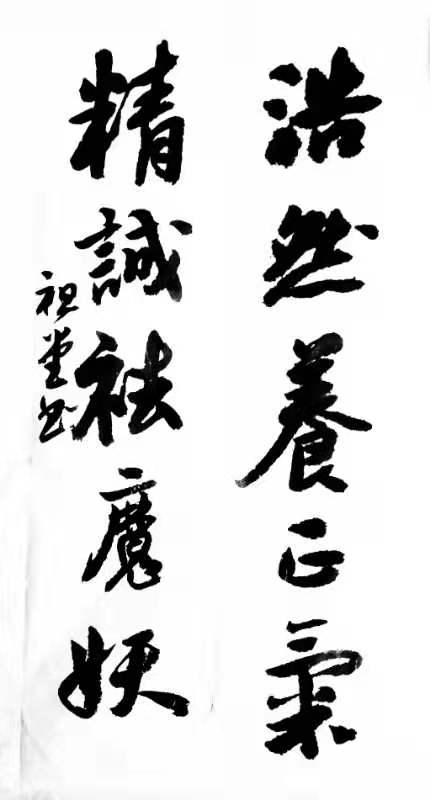 浩然養正氣
精誠祛魔妖
祖堂书